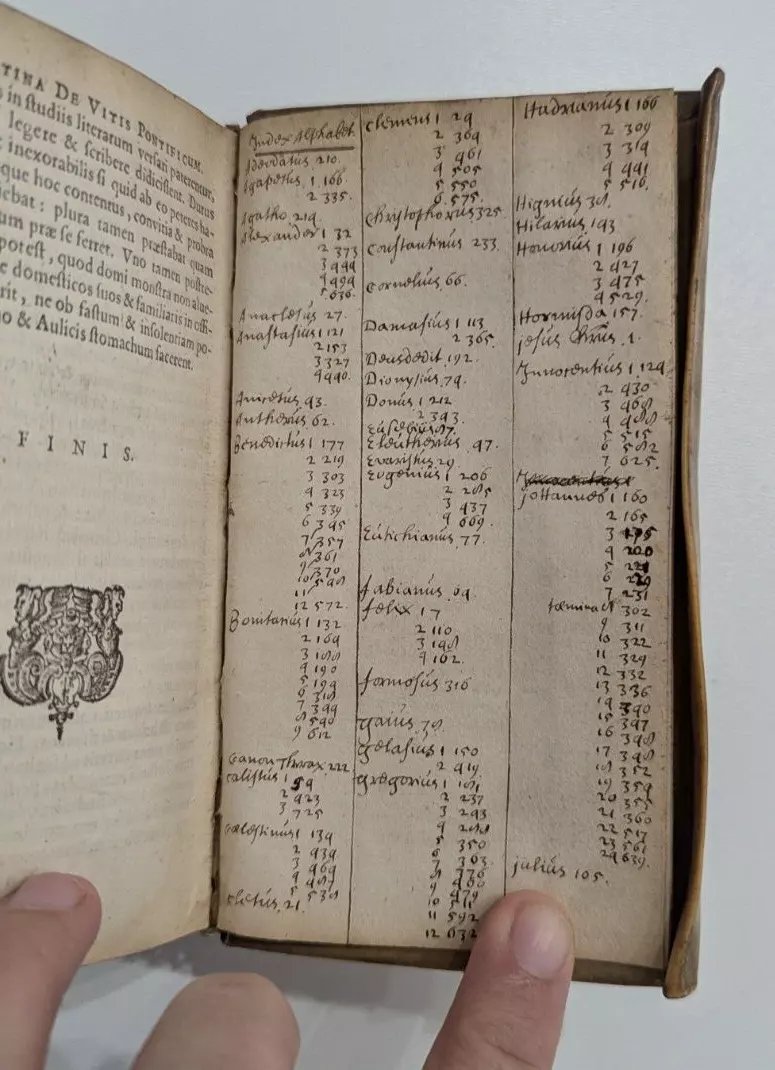 TINA DE VITIS PONTIFICUM.
in studiis literarum versari paterentur,
legere & scribere didicissent. Durus
inexorabilis si quid ab eo peteres ha-
que hoc contentus, convitia & probra
ebat: plura tamen præstabat quam
um præ se ferret. Uno tamen
potest, quod domi monstra non alue-
e domesticos suos & familiaris in offi-
rit, ne ob fastum & insolentiam po-
o & Aulicis stomachum facerent.
FINIS.
Index Alphabet
Adeodatus 210.
Agapetus. 1. 166.
2 335.
Agatho. 214.
Alexander 1 32
2 373
3 444
4 494
5 636.
Anacletus 27.
Anastasius 1 121
2 153
3 327
4 440.
Anicetus 43.
Antherus 62.
Benedictus 1 177
2 219
3 303
4 323
5 339
6 345
7 357
8 361
9 370
10 548
11
12 572.
Bonifacius 1 132
2 164
3 188
4 190
5 194
6 318
7 344
8 540
9 612
Canon Thorax 222
Calistus 1 54
2 423
3 725
Cælestinus 1 134
2 434
3 464
4 487
5 538
Cletus. 21.
Clemens 1 24
2 364
3 461
4 505
5 550
6 575.
Chrystophorus 325.
Constantinus 233.
Cornelius 66.
Damasius 1 113
2 365.
Deusdedit 192.
Dionysius 74.
Donus 1 212
2 343.
Eusebius 87.
Eleutherus 47.
Evaristus 29.
Eugenius 1 206
2 285
3 437
4 609.
Eutichianus 77.
Fabianus 64.
Felix 1 7
2 110
3 148
4 162.
Formosus 316
Gaius 78
Gelasius 1 150
2 419
Gregorius 1 181
2 237
3 243
4 288
5 350
6
7 303
8 376
9 460
10 479
11 592
12 632
Hadrianus 1 166
2 309
3 314
4 441
5 516.
Higinius 38.
Hilarius 143
Honorius 1 196
2 427
3 475
4 529.
Hormisda 157.
Jesus Chrūs. 1.
Innocentius 1 124
2 430
3 468
4 488
5 515
6 582
7 625.
Johannes 1 160
2 165
3 175
4 200
5 224
6 229
7 231
fæmina 302
9 311
10 322
11 324
12 332
13 336
14 340
15 347
16 348
17 348
18 352
19 354
20 355
21 360
22 517
23 561
24 639.
Julius 105.